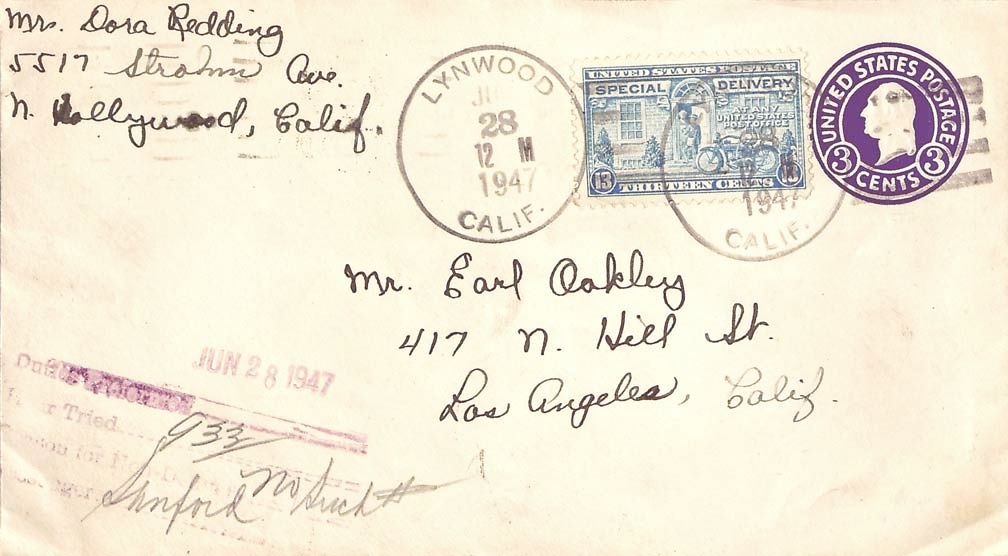 Mrs. Dora Redding
5517 Strohm Ave.
N. Hollywood, Calif.
LYNWOOD
28
12 M
1947
CALIF.
UNITED STATES POSTAGE
SPECIAL DELIVERY
AT ANY
UNITED STATES
POST OFFICE
13 13
THIRTEEN CENTS
28
1947
CALIF.
UNITED STATES POSTAGE
3 3
CENTS
Mr. Earl Oakley
417 N. Hill St.
Los Angeles, Calif.
JUN 28 1947
Tried
933
for
No Such #
Sanford